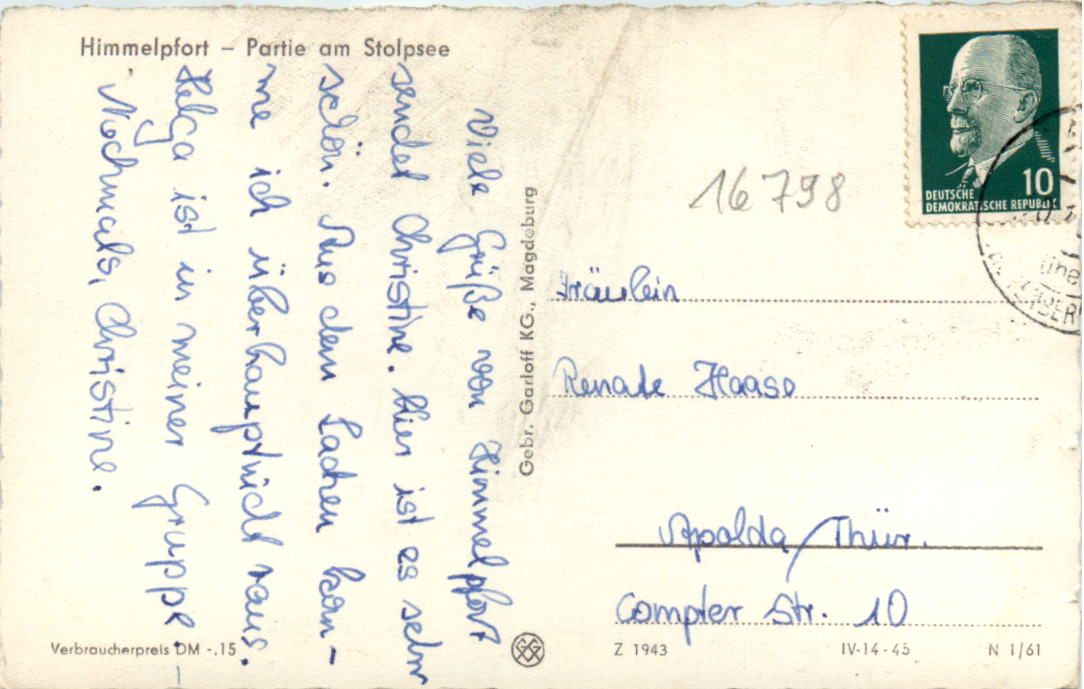 Himmelpfort – Partie am Stolpsee
Viele Grüße von Himmelpfort
sendet Christine. Hier ist es sehr
schön. Aus dem Lachen kom-
me ich überhauptnicht raus.
Helga ist in meiner Gruppe. –
Nochmals, Christine.
Verbraucherpreis DM -,15
Gebr. Garloff KG., Magdeburg
DEUTSCHE
DEMOKRATISCHE REPUBLIK
10
16798
Fräulein
Renate Haase
Apolda/Thür.
Compter Str. 10
Z 1943
IV-14-45
N 1/61